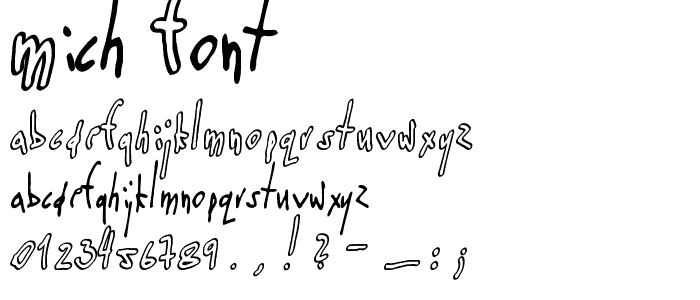 mich font
abcdefghijklmnopqrstuvwxyz
abcdefghijklmnopqrstuvwxyz
0123456789.,!?-_:;